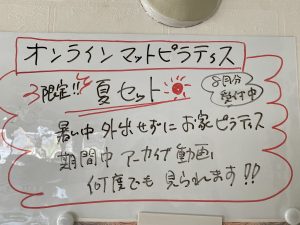 オンラインマットピラティス
限定!! 夏セット
8月分
受付中
暑い中 外出せずに お家ピラティス
期間中 アーカイブ動画
何度でも 見られます!!